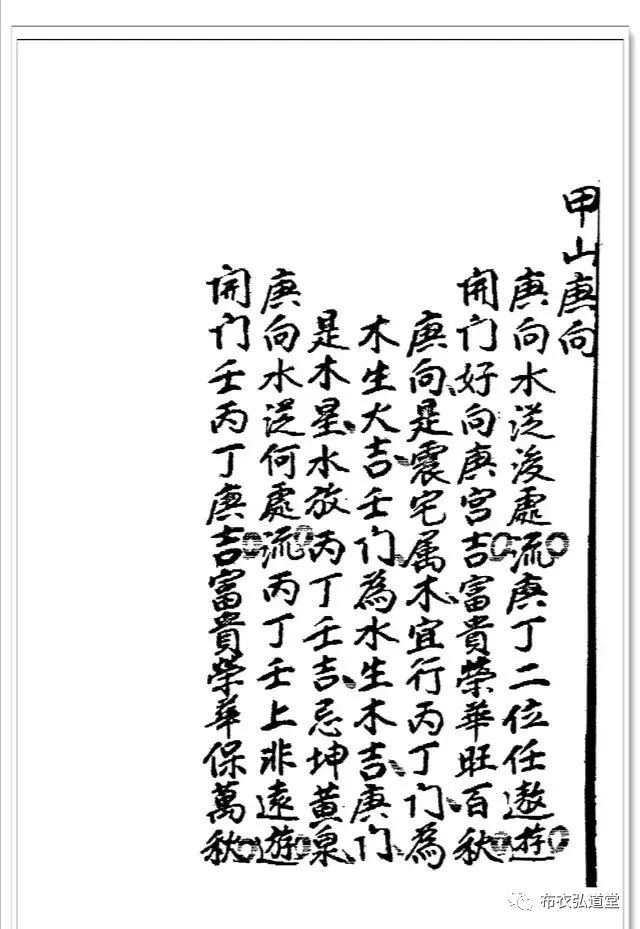 甲山庚向
庚向水從後處流○庚丁二位任遨遊○
開门好向庚宮吉○富貴榮華旺百秋○
庚向、是震宅属木、宜行丙丁门、為
木生大吉、壬门、為水生木吉、庚门
是木星、水放丙丁壬吉、忌坤黄泉
庚向水從何處流○丙丁壬上非遠遊○
開门壬丙丁庚吉○富貴榮華保萬秋○
布衣弘道堂